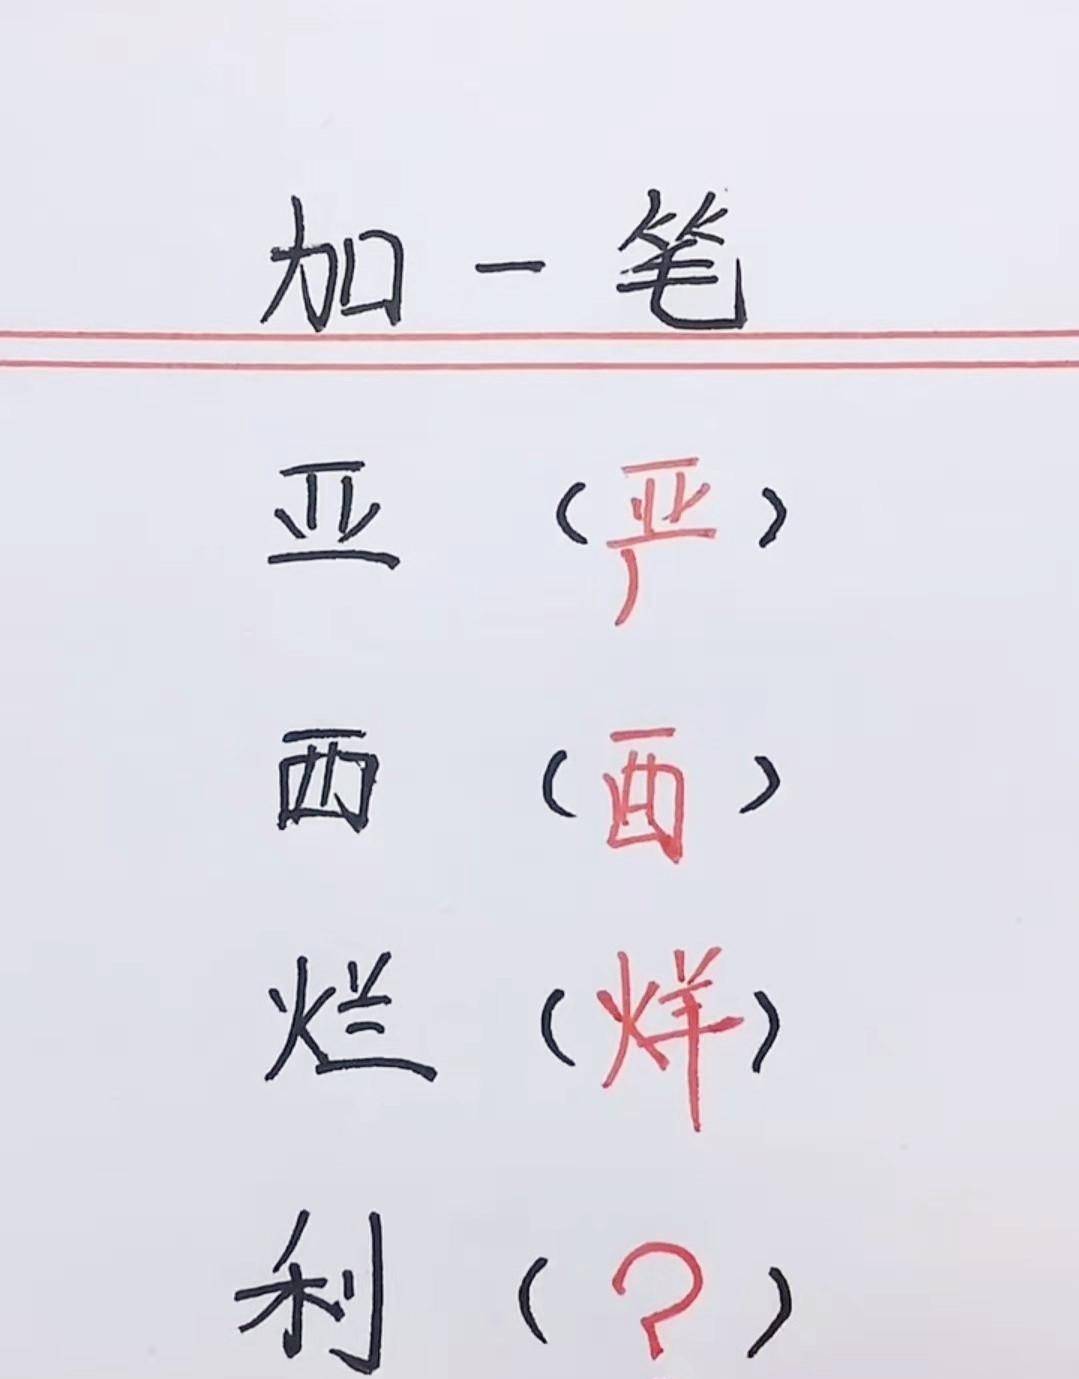 加一笔
亚（严）
西（酉）
烂（烊）
利（？）